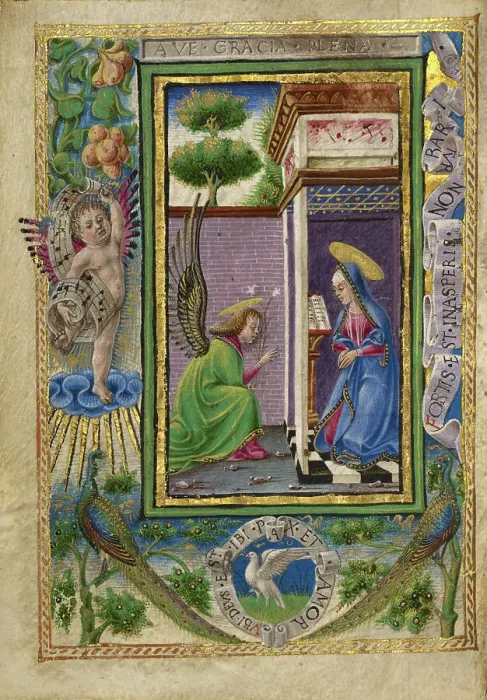 AVE · GRACIA · PLENA ·
FORTIS · EST · INASPERIS · NON
VBI · DEVS · EST · IBI · PAX · ET · AMOR